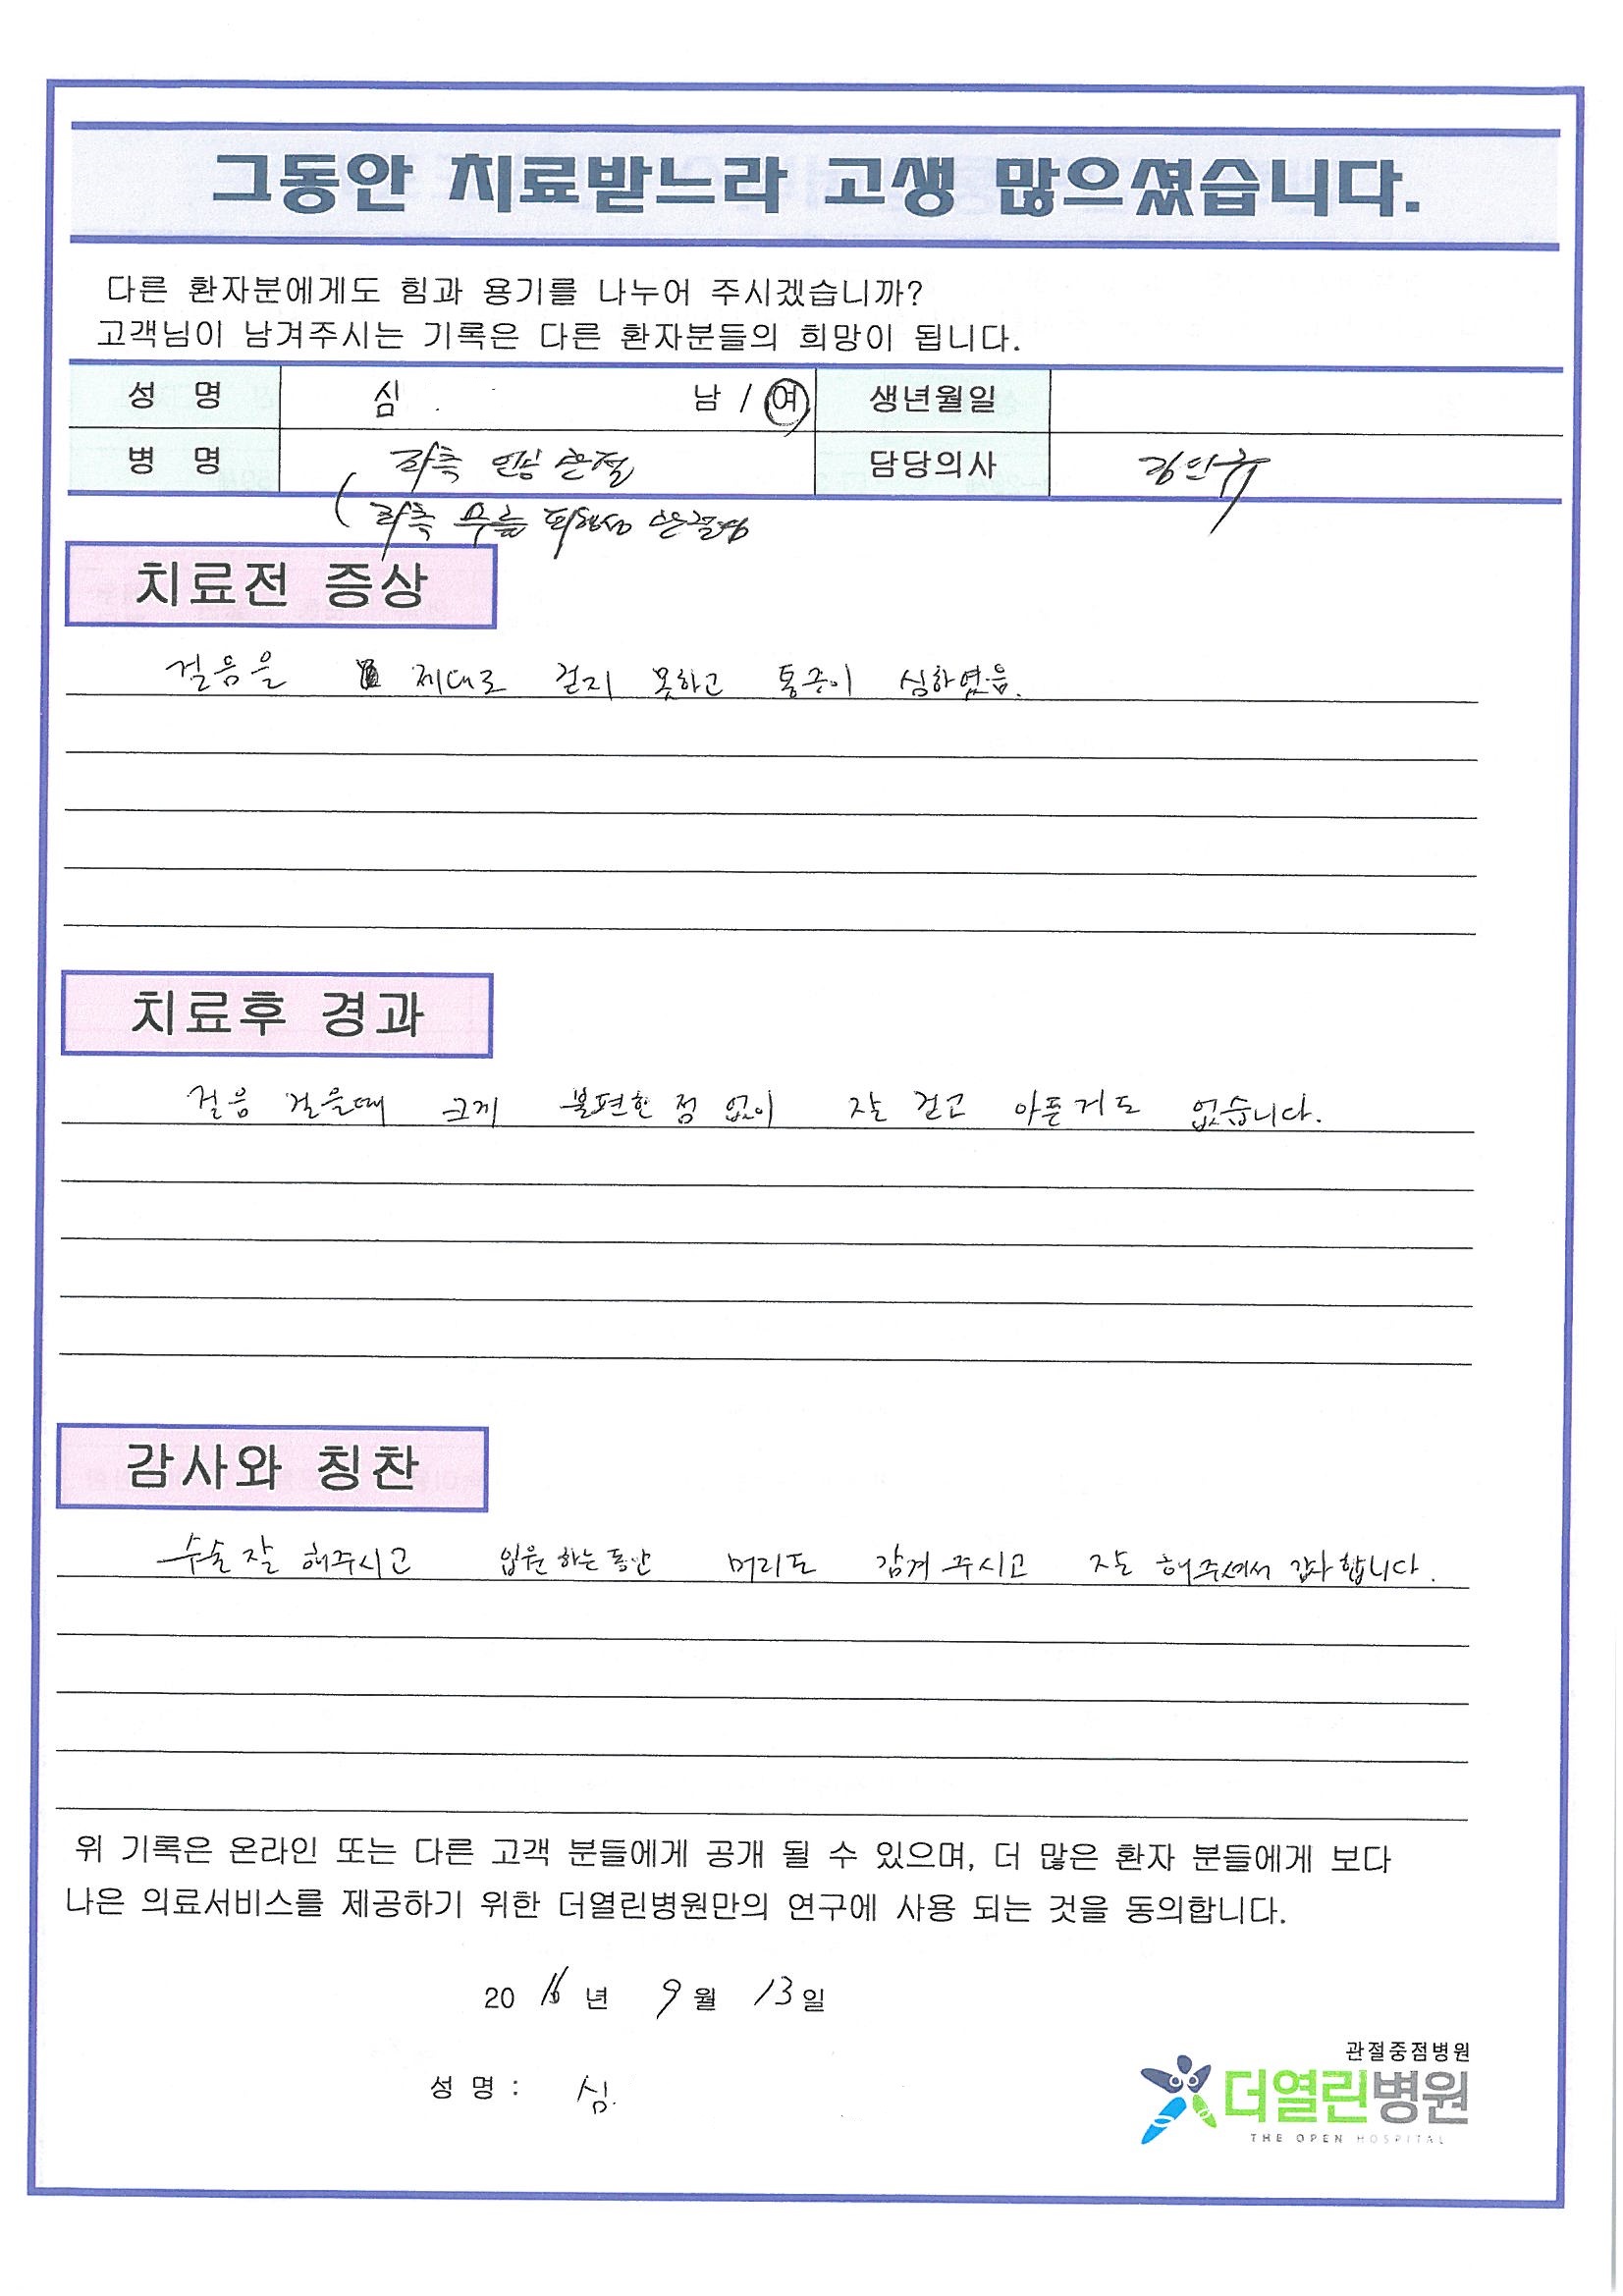 그동안 치료받느라 고생 많으셨습니다.
다른 환자분에게도 힘과 용기를 나누어 주시겠습니까?
고객님이 남겨주시는 기록은 다른 환자분들의 희망이 됩니다.
성 명 심 . 남 / 여 생년월일
병 명 좌측 인공 관절 담당의사
(좌측 무릎 퇴행성 관절염
치료전 증상
걸음을 제대로 걷지 못하고 통증이 심하였음.
치료후 경과
걸음 걸을때 크게 불편한 점 없이 잘 걷고 아픈거도 없습니다.
감사와 칭찬
수술잘 해주시고 입원하는동안 머리도 감겨주시고 잘 해주셔서 감사합니다.
위 기록은 온라인 또는 다른 고객 분들에게 공개 될 수 있으며, 더 많은 환자 분들에게 보다
나은 의료서비스를 제공하기 위한 더열린병원만의 연구에 사용 되는 것을 동의합니다.
2016년 9월 13일
성 명 : 심.
관절중점병원
더열린병원
THE OPEN HOSPITAL